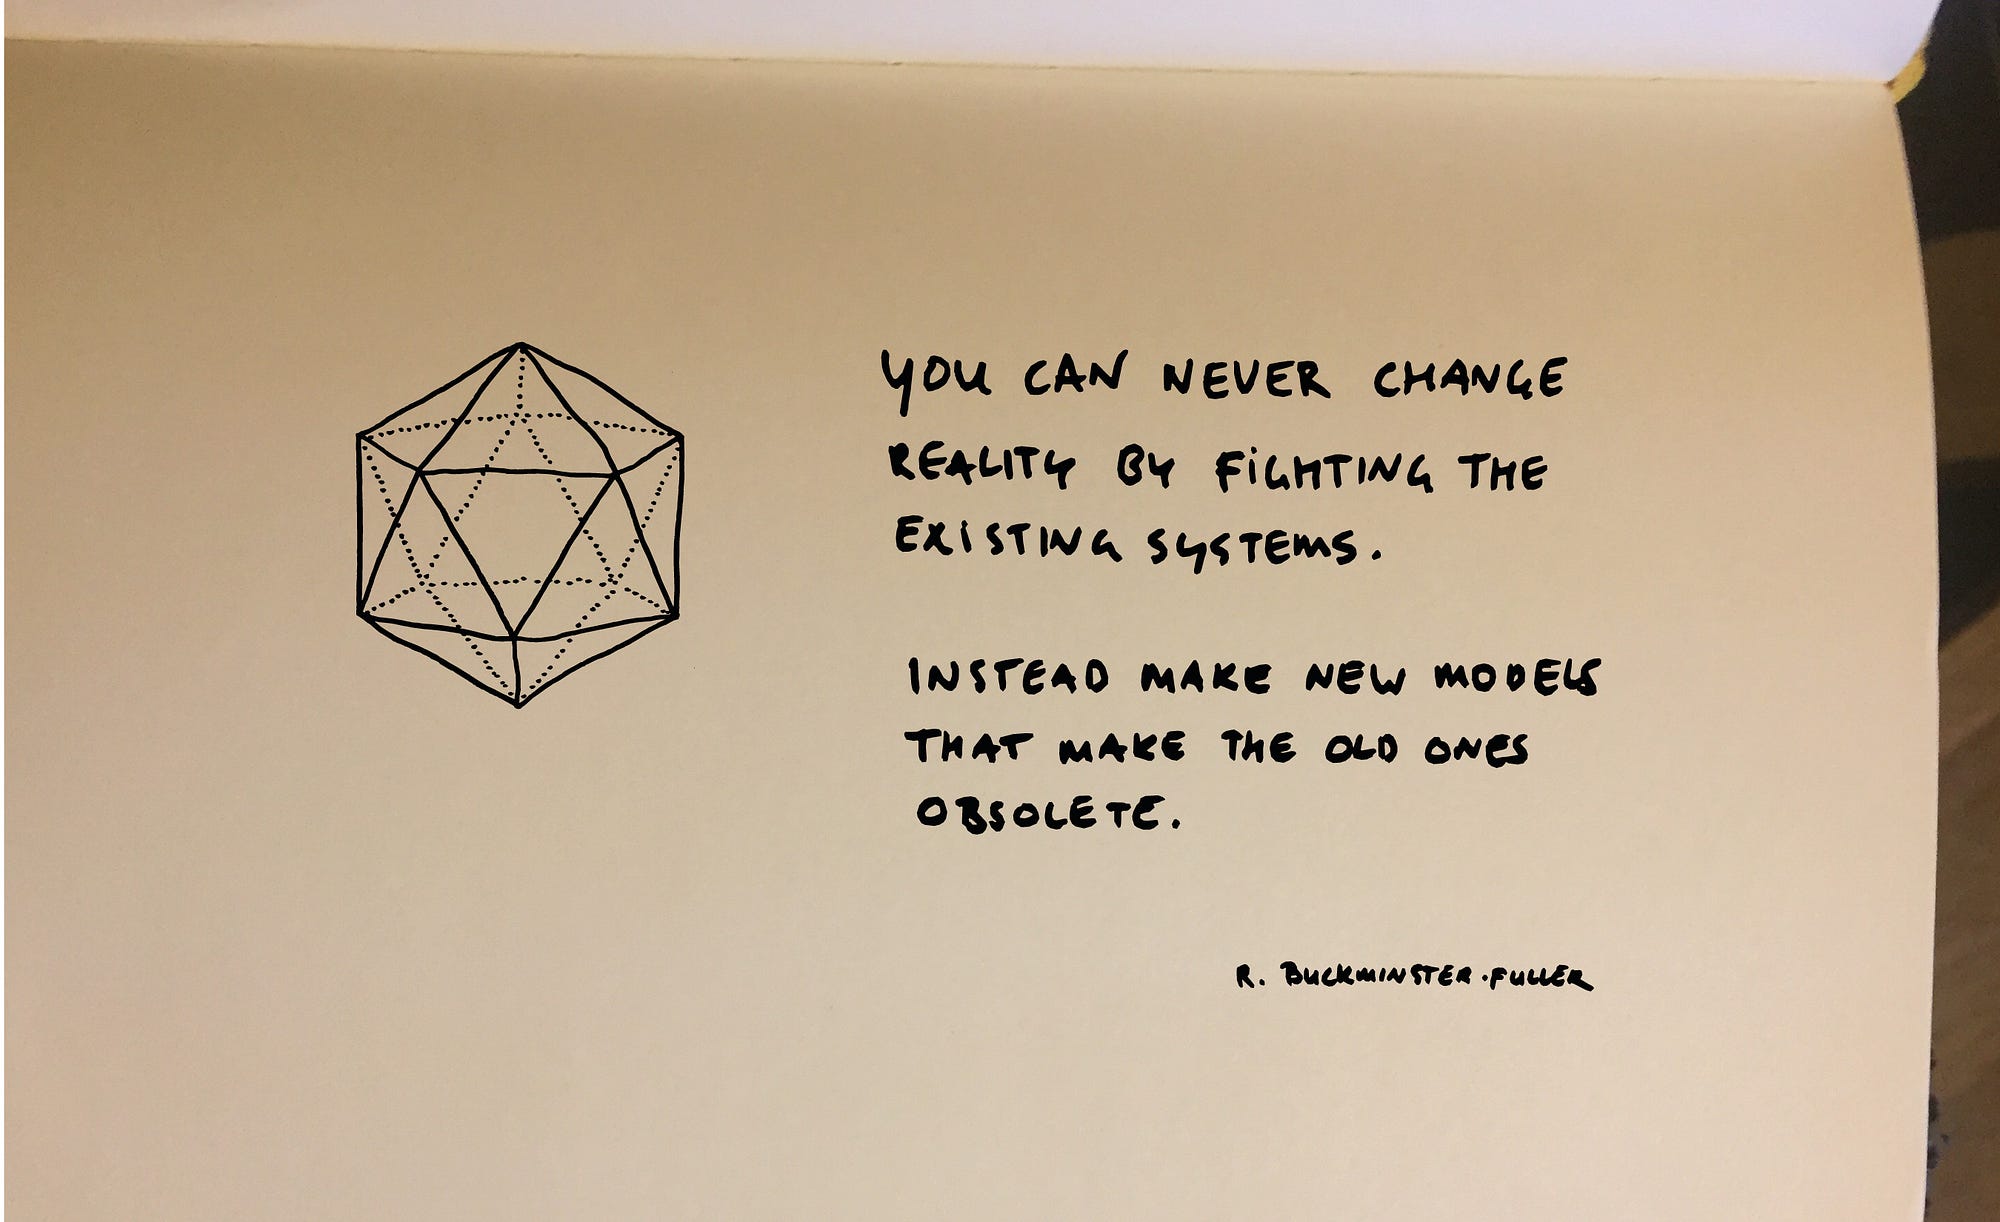 YOU CAN NEVER CHANGE
REALITY BY FIGHTING THE
EXISTING SYSTEMS.
INSTEAD MAKE NEW MODELS
THAT MAKE THE OLD ONES
OBSOLETE.
R. BUCKMINSTER·FULLER